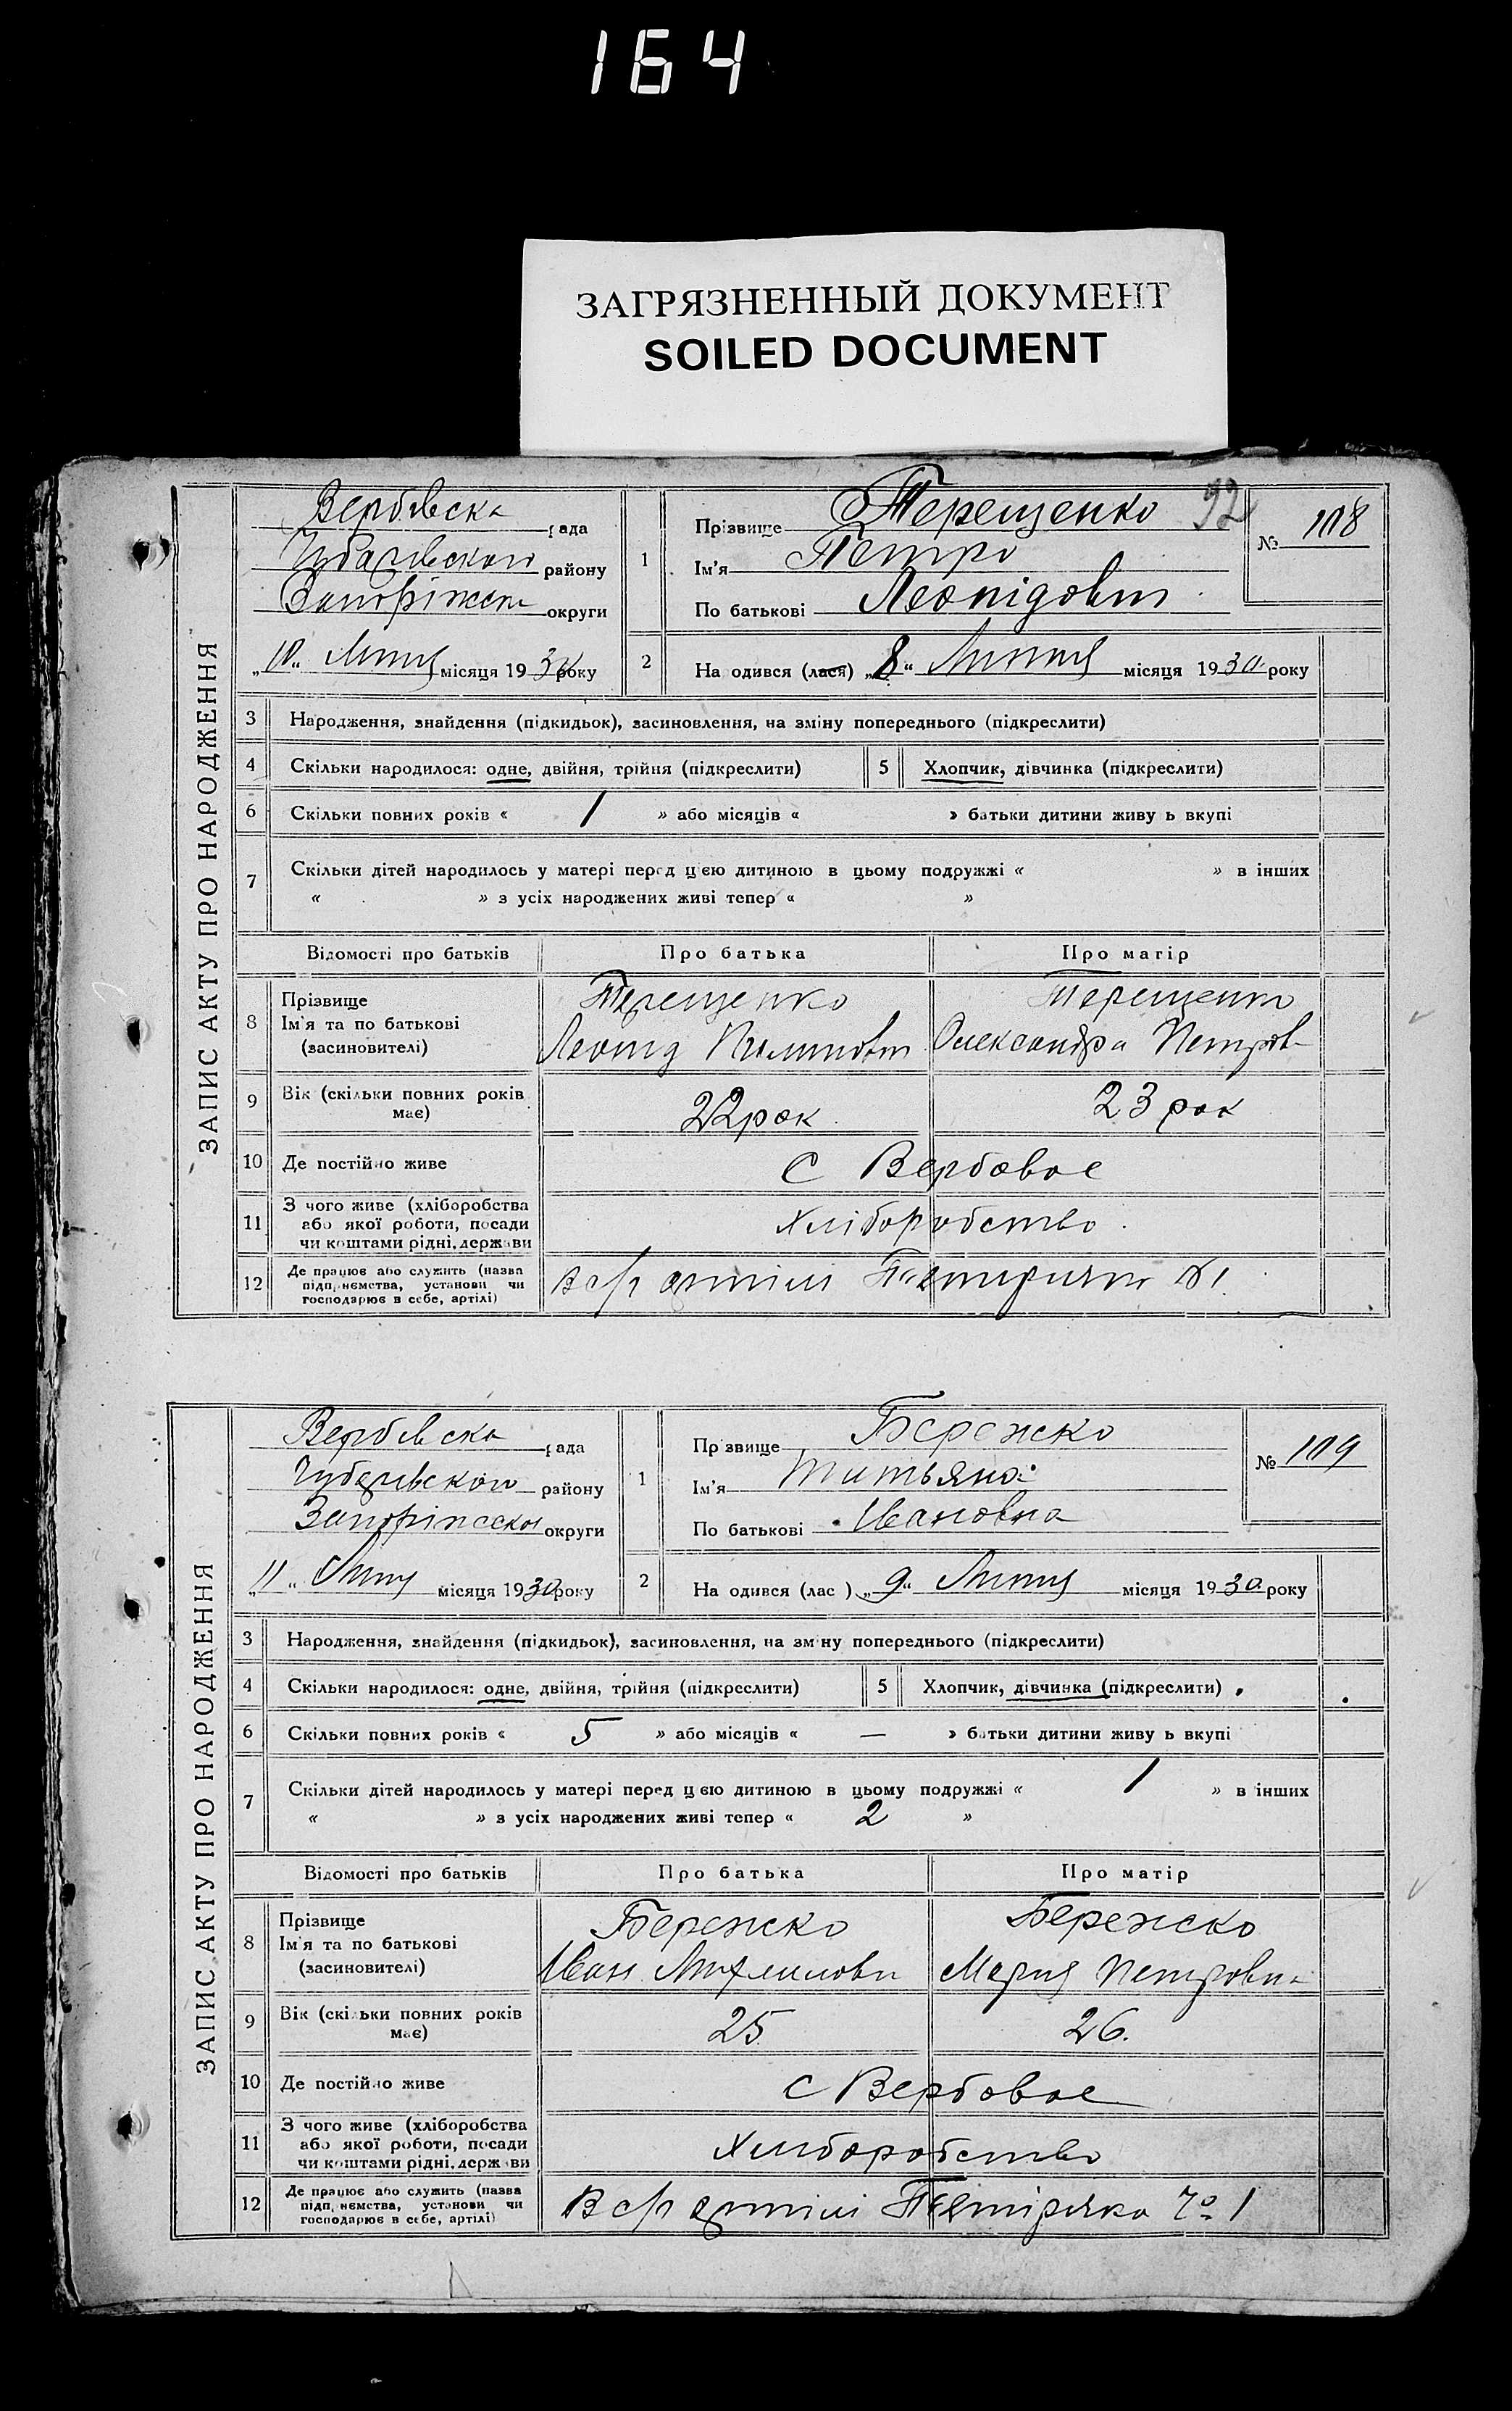 164
ЗАГРЯЗНЕННЫЙ ДОКУМЕНТ
SOILED DOCUMENT
92
ЗАПИС АКТУ ПРО НАРОДЖЕННЯ
Вербівска рада
району
округи
„10“ Липня місяця 1930 року
1 Прізвище Терещенко
Ім'я Петро
По батькові Леонідович
№ 108
2 На одився (лася) „8“ Липня місяця 1930 року
3 Народження, знайдення (підкидьок), засиновлення, на зміну попереднього (підкреслити)
4 Скільки народилося: одне, двійня, трійня (підкреслити) 5 Хлопчик, дівчинка (підкреслити)
6 Скільки повних років « 1 » або місяців « » батьки дитини живу ь вкупі
7 Скільки дітей народилось у матері перед цією дитиною в цьому подружжі « » в інших
« » з усіх народжених живі тепер « »
Відомості про батьків Про батька Про матір
8 Прізвище Терещенко Терещенко
Ім'я та по батькові Леонид Олександра Петров
(засиновителі)
9 Вік (скільки повних років має) 22 рок 23 рок
10 Де постійно живе С Вербовое
11 З чого живе (хліборобства Хліборобство
або якої роботи, посади
чи коштами рідні, держави
12 Де працює або служить (назва В с/г артілі №1
підприємства, установи чи
господарює в себе, артілі)
ЗАПИС АКТУ ПРО НАРОДЖЕННЯ
Вербівска рада
району
округи
„11“ Липня місяця 1930 року
1 Пр звище Бережко
Ім'я Татьяна
По батькові Ивановна
№ 109
2 На одився (лас ) „9“ Липня місяця 1930 року
3 Народження, знайдення (підкидьок), засиновлення, на зм ну попереднього (підкреслити)
4 Скільки народилося: одне, двійня, трійня (підкреслити) 5 Хлопчик, дівчинка (підкреслити)
6 Скільки повних років « 5 » або місяців « — » батьки дитини живу ь вкупі
7 Скільки дітей народилось у матері перед цією дитиною в цьому подружжі « 1 » в інших
« » з усіх народжених живі тепер « 2 »
Відомості про батьків Про батька Про матір
8 Прізвище Бережко Бережко
Ім'я та по батькові Иван Мария Петровна
(засиновителі)
9 Вік (скільки повних років має) 25 26.
10 Де постійно живе С Вербовое
11 З чого живе (хліборобства Хлиборобство
або якої роботи, посади
чи коштами рідні, держави
12 Де працює або служить (назва В с/г артілі № 1
підприємства, установи чи
господарює в себе, артілі)